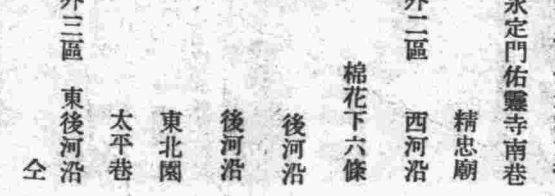 永定門佑靈寺南巷
精忠廟
外二區 西河沿
棉花下六條
後河沿
後河沿
東北園
太平巷
外三區 東後河沿
仝